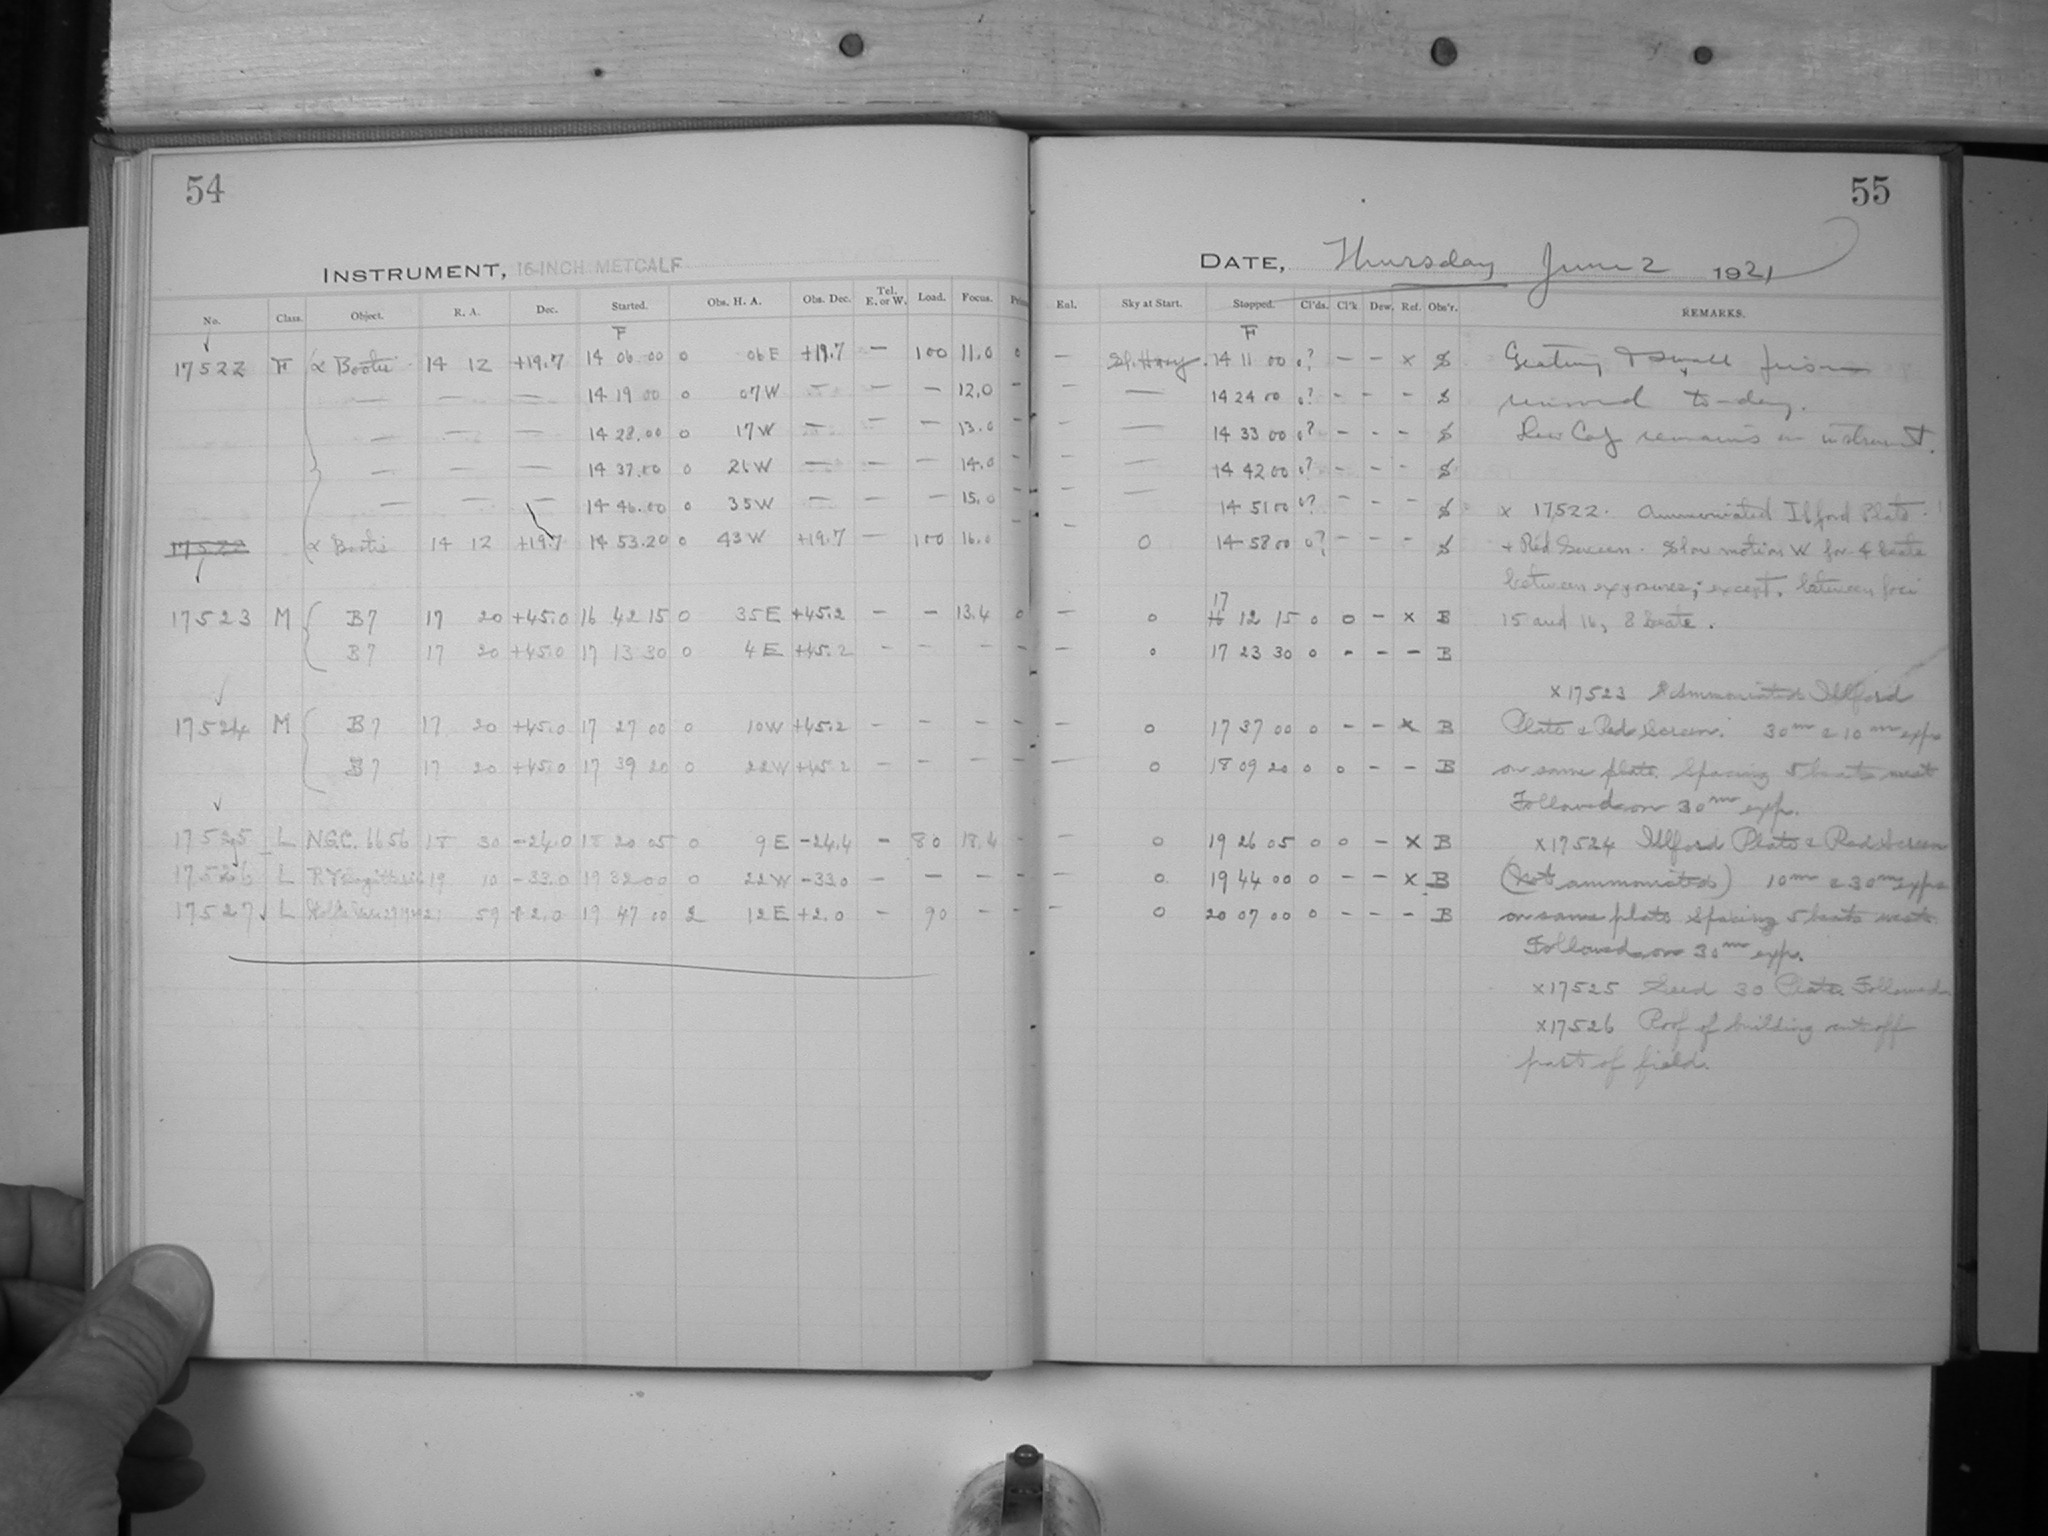 54
INSTRUMENT, 16-INCH METCALF
No. Class. Object. R. A. Dec. Started. Obs. H. A. Obs. Dec. Tel. E. or W. Load. Focus.
F
17522 F α Bootis 14 12 +19.7 14 06 00 0 06 E +19.7 — 100 11.0 0
— — — 14 19 00 0 07 W — — — 12.0 —
— — — 14 28.00 0 17 W — — — 13.0 —
— — — 14 37.00 0 26 W — — — 14.0 —
— — — 14 46.00 0 35 W — — — 15.0 —
17522 α Bootis 14 12 +19.7 14 53.20 0 43 W +19.7 — 100 16.0 —
17523 M B7 17 20 +45.0 16 42 15 0 35 E +45.2 — — 13.4 0
B7 17 20 +45.0 17 13 30 0 4 E +45.2 — — — —
17524 M B7 17 20 +45.0 17 27 00 0 10 W +45.2 — — — —
B7 17 20 +45.0 17 39 20 0 22 W +45.2 — — — —
17525 L NGC. 6656 18 30 -24.0 18 20 05 0 9 E -24.4 — 80 18.4 —
17526 L RY Sagittarii 19 10 -33.0 19 32 00 0 22 W -33.0 — — — —
17527 L 21 59 +2.0 19 47 00 2 12 E +2.0 — 90 — —
55
DATE, Thursday June 2 1921
Enl. Sky at Start. Stopped. Cl'ds. Cl'k. Dew. Ref. Obs'r. REMARKS.
F
— Sl. Hazy. 14 11 00 0? — — x S Grating & small prism
— — 14 24 00 0? — — — S removed to-day.
— — 14 33 00 0? — — — S remains on instrument.
— — 14 42 00 0? — — — S
— — 14 51 00 0? — — — S x 17522. Ammoniated Ilford Plate.
— 0 14 58 00 0? — — — S + Red Screen. Slow motion W for 4 beats
between exposures; except, between foci
17
— 0 16 12 15 0 0 — x B 15 and 16, 8 beats.
— 0 17 23 30 0 - — — B
x 17523 Ammoniated Ilford
— 0 17 37 00 0 — — x B Plate & Red Screen. 30m & 10m exps
— 0 18 09 20 0 0 — — B on same plate. Spacing 5 beats west
Followed on 30m exp.
— 0 19 26 05 0 0 — x B x 17524 Ilford Plate & Red Screen
— 0 19 44 00 0 — — x B (Not ammoniated) 10m & 30m exps
— 0 20 07 00 0 — — — B on same plate Spacing 5 beats west.
Followed on 30m exp.
x 17525 Seed 30 Plate. Followed
x 17526 Roof of building cuts off
part of field.